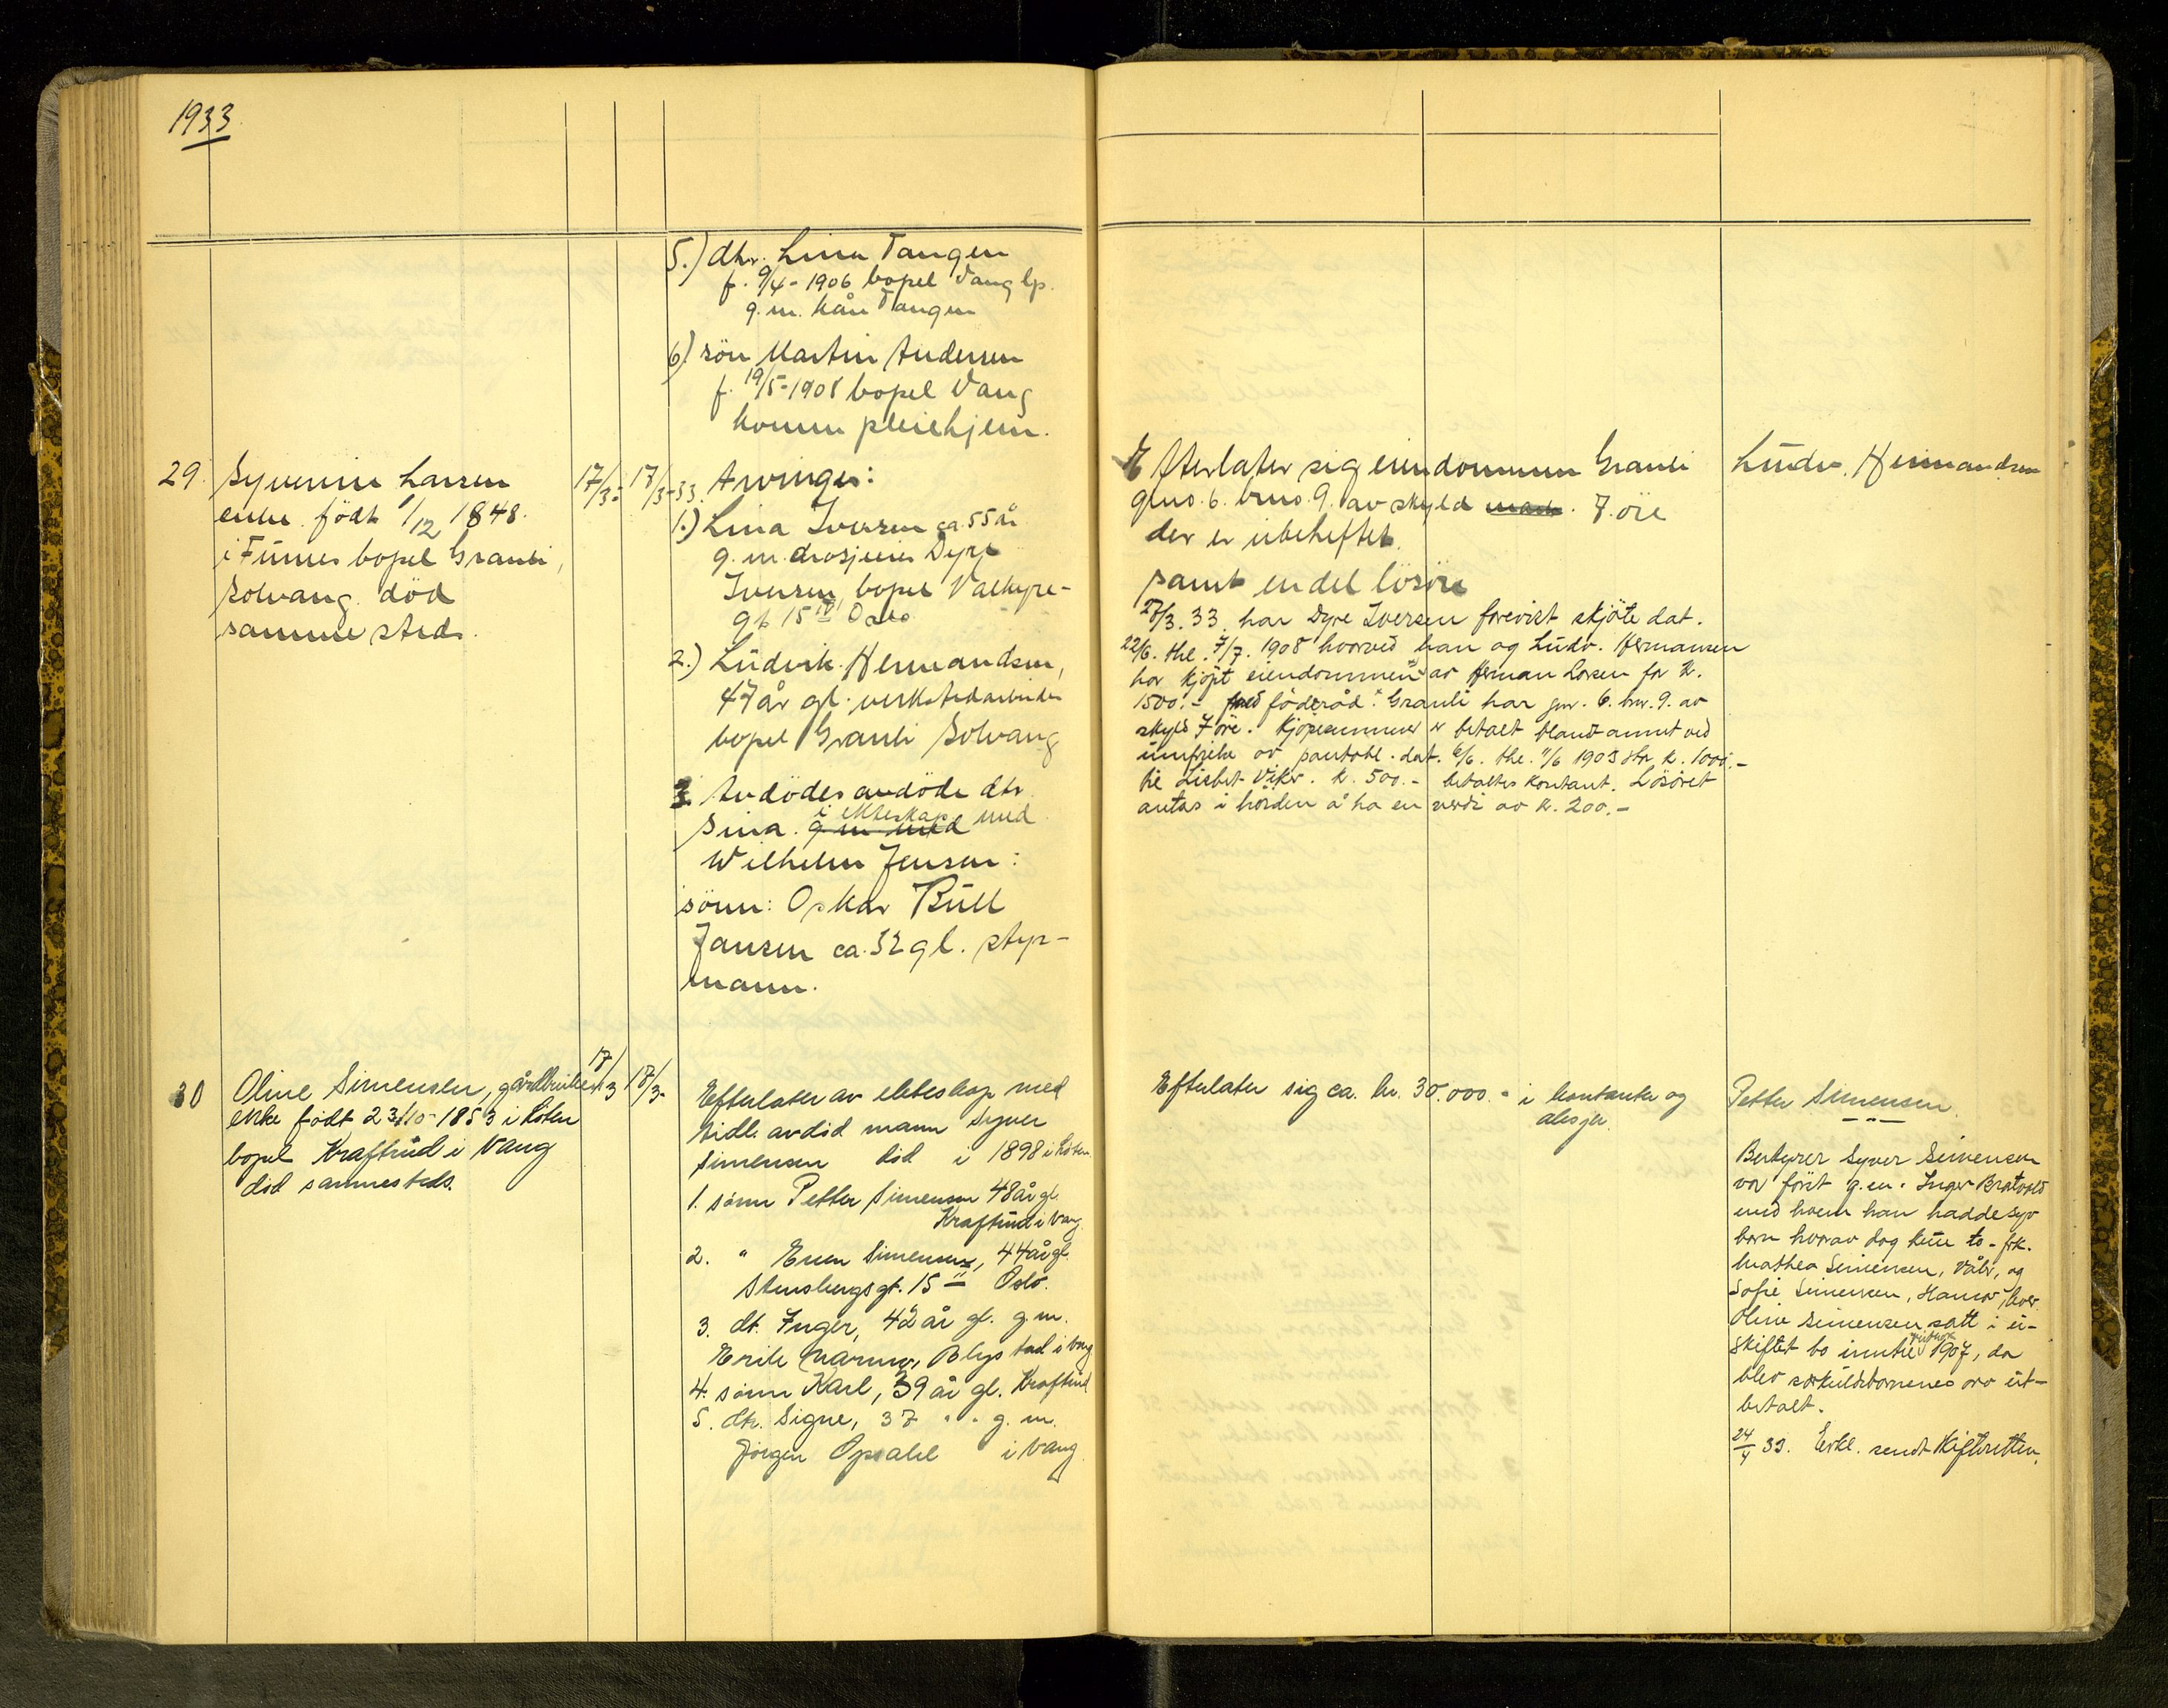 1933
5.) dtr. Lina Tangen
f. 9/4-1906 bopel Vang lp.
g.m. Kåre Tangen
6) sön Martin Andersen
f. 19/5-1908 bopel Vang
komm pleiehjem.
29. Syverine Larsen
enke født 1/12 1848.
i Furnes bopel Granli,
Solvang. död
samme steds.
17/3- 17/3-33.
Arvinger:
1.) Lina Iversen ca. 55 år
g.m. drosjeeier Dyre
Iversen, bopel Valkyre-
gt 15 IV Oslo
2.) Ludvik Hermandsen,
47 år gl. verkstedarbeider
bopel Granli Solvang
3. Avdödes avdöde dtr.
Sina. g m med i ekteskap med
Wilhelm Jensen:
sönn: Oskar Bull
Jansen ca. 32 gl. styr-
mann.
30 Oline Simensen, gårdbruker
enke født 23/10-1853 i Löten
bopel Kraftrud i Vang
död sammesteds.
17/3 18/3-
Efterlater av ekteskap med
tidl. avdöd mann Syver
Simensen död i 1898 i Löten
1. sönn Petter Simensen 48 år gl.
Kraftrud i Vang
2. " Even Simensen, 44 år gl.
Stensbergsgt. 15 II Oslo.
3. dt. Inger, 42 år gl. g.m.
Erik Narmo, Blystad i Vang
4. sönn Karl, 39 år gl. Kraftrud
5. dtr. Signe, 37 " " g.m.
Jörgen Opsahl i Vang
Efterlater sig eiendommen Granli
gno. 6. bruo. 9. av skyld mark. 7. öre
der er ubeheftet.
samt en del lösöre
27/3. 33. har Dyre Iversen forevist skjöte dat.
22/6. thl. 7/7. 1908 hvorved han og Ludv. Hermansen
har kjöpt eiendommen av Herman Larsen for kr.
1500.- med föderåd. Granli har gnr. 6. bnr. 9. av
skyld 7 öre. Kjöpesummen er betalt blandt annet ved
innfrielse av pantobl. dat. 6/6. thl. 11/6 1903 stor k. 1000.-
til Lisbet Viker. k. 500.- betaltes kontant. Lösöret
antas i höiden å ha en verdi av k. 200.-
Ludv. Hermandsen
Efterlater sig ca. kr. 30.000.- i kontanter og
aksjer.
Petter Simensen.
- " -
Bestyrer Syver Simensen
var först g.m. Inger Bratvold
med hvem han hadde syv
barn hvorav dog kun to - frk.
Mathea Simensen, Våler, og
Sofie Simensen, Hamar, lever.
Oline Simensen satt i u-
skiftet bo inntil 1907, da
blev særkullsbarnenes arv ut-
betalt.
24/4 33. Erkl. sendt Skifteretten.